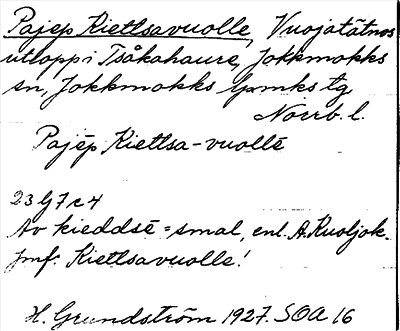 Pajep Kietlsavuolle, Vuojatätnos
utlopp i Tsåkahaure, Jokkmokks
sn, Jokkmokks lpmks tg
Norrb. l.
Pajēp Kietlsa-vuollē
23 G 7 c 4
Av kieddsē = smal, enl. A. Ruoljok.
Jmf. Kietlsavuolle!
H. Grundström 1927. SOA 16